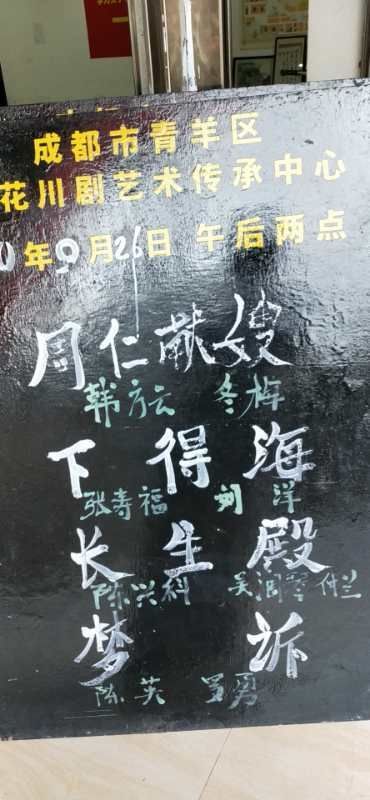 成都市青羊区
花川剧艺术传承中心
0年9月26日 午后两点
周仁献嫂
韩方云 冬梅
下得海
张寿福 刘洋
长生殿
陈兴科 吴润琴 仲兰
梦诉
陈英 罗勇